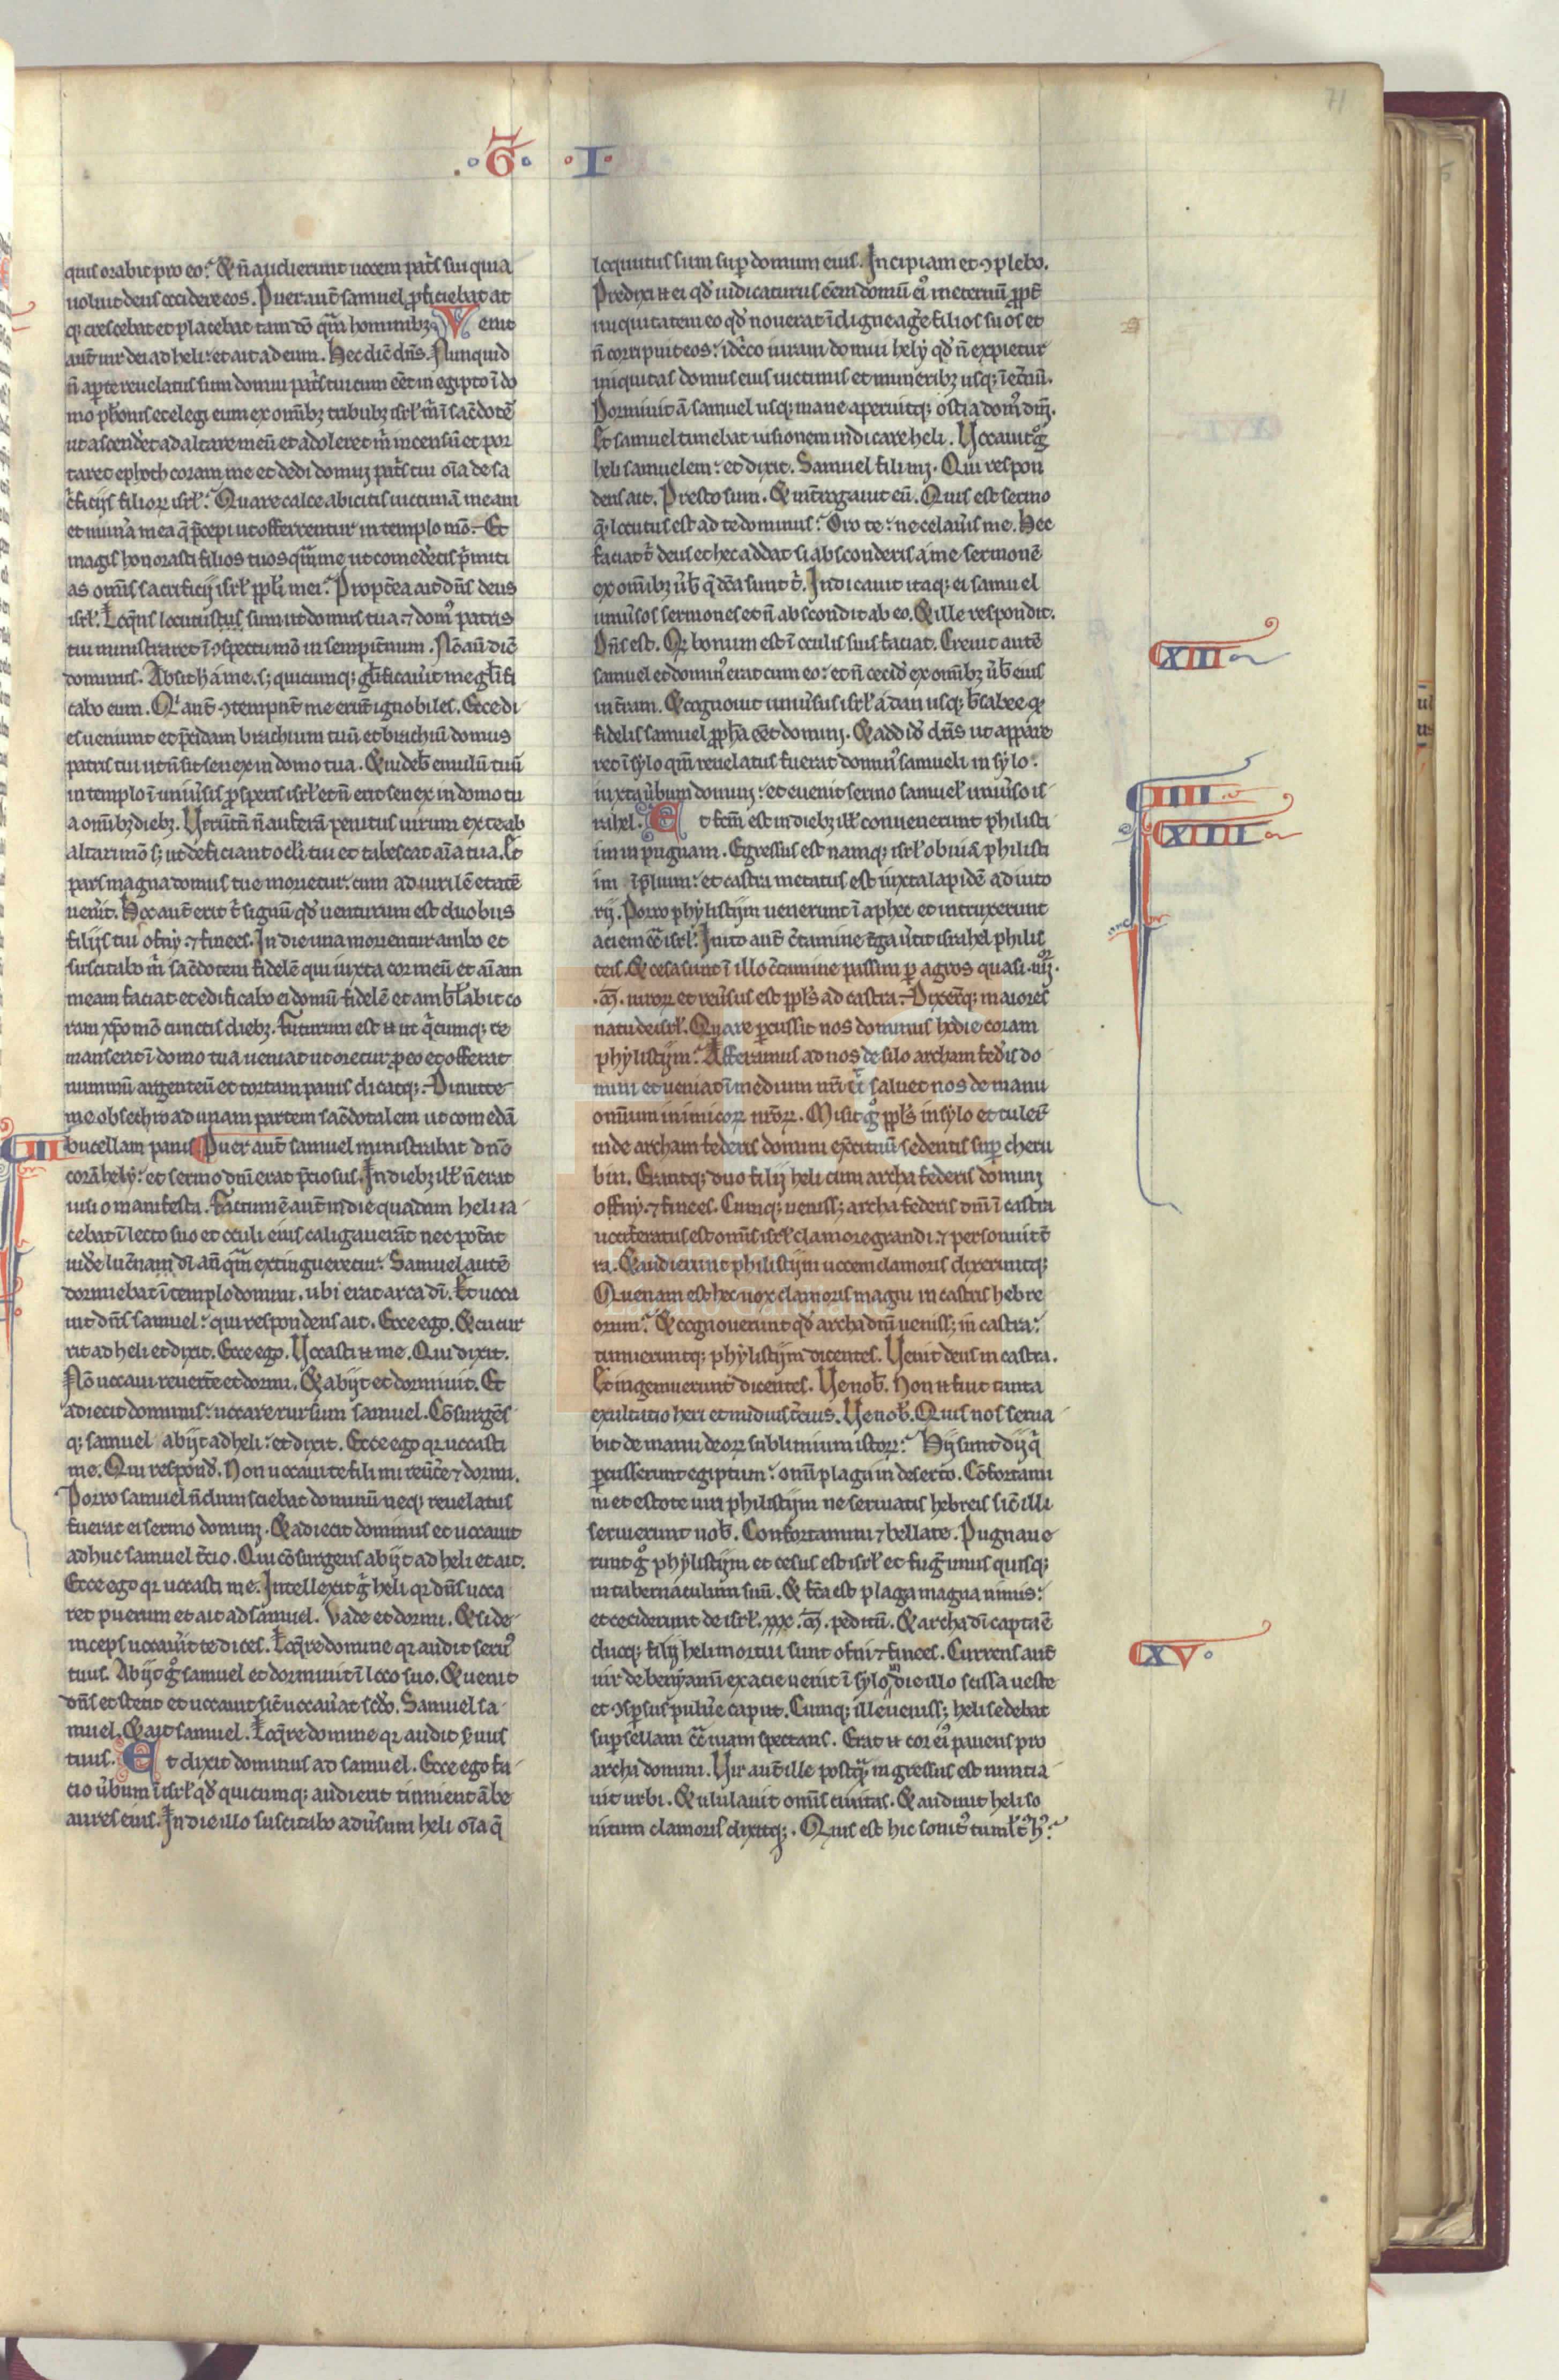 71
·G· ·I·
quis orabit pro eo? Et ñ audierunt uocem pat̃s sui quia
uoluit deus occidere eos. Puer aut̃ samuel ꝓficiebat at
qꝫ crescebat et placebat tam dõ q̃m hominibꝫ. Venit
aut̃ uir dei ad heli: et ait ad eum. Hec dic̃ dñs. Nunquid
ñ aperte reuelatus sum domui pat̃s tui cum eẽt in egipto ĩ do
mo ph̃onis et elegi eum ex om̃ibꝫ tribubꝫ isrł m̃ ĩ sac̃dotẽ
ut ascendet ad altare meũ et adoleret m̃ incensũ et por
taret ephoth coram me et dedi domui pat̃s tui oĩa de sa
c̃ficijs filioꝝ isrł? Quare calce abicitis uictimã meam
et mun̾a mea q̃ p̃cepi ut offerrentur in templo mõ. Et
magis honorasti filios tuos q̃m me ut comed̾etis p̃miti
as om̃is sacrificij isrł ppłi mei? Propt̾ea ait dñs deus
isrł. Loq̃ns locutus sum ut domus tua ⁊ domꝰ patris
tui ministraret ĩ ꝯspectu mõ in sempit̾num. Nc̃ aũ dic̃
dominus. Absit h̾ a me. sꝫ quicunqꝫ gl̃ificau̾it me gl̃ifi
cabo eum. Qͥ aut̃ ꝯtempnt̃ me erũt ignobiles. Ecce di
es ueniunt et p̃cidam brachium tuũ et brachiũ domus
patris tui ut ñ sit senex in domo tua. Et uideb̃ emulũ tuũ
in templo ĩ uniu̾sis ꝓsperis isrł et ñ erit senex in domo tu
a om̃ibꝫ diebꝫ. Veru̾tñ ñ auferã penitus uirum ex te ab
altari mõ sꝫ ut deficiant oc̃li tui et tabescat aĩa tua. Et
pars magna domus tue morietur: cum ad uirilẽ etatẽ
uen̾it. Hoc aut̃ erit t̾ signũ qd̾ uenturum est duobus
filijs tui ofny ⁊ finees. In die una morientur ambo et
suscitabo m̾ sac̃dotem fidelẽ qui iuxta cor meũ et aĩam
meam faciat et edificabo ei domũ fidelẽ et amb̃labit co
ram xp̃o mõ cunctis diebꝫ. Futurum est ñ ut q̃cumqꝫ re
manserit ĩ domo tua ueniat ut oretur ꝓ eo et offerat
nummũ argenteũ et tortam panis dicatqꝫ. Dimitte
me obsechro ad unam partem sac̃dotalem ut comedã
III
bucellam panis. Puer aut̃ samuel ministrabat dño
corã hely: et sermo dñi erat p̃ciosus. In diebꝫ illis ñ erat
uisio manifesta. Factum ẽ aut̃ in die quadam heli ia
cebat ĩ lecto suo et oculi eius caligauerãt nec pot̾at
uid̾e luc̃nam dĩ añ q̃m extingueretur. Samuel autẽ
dormiebat ĩ templo domini. ubi erat arca dĩ. Et uoca
uit dñs samuel: qui respondens ait. Ecce ego. Et cucur
rit ad heli et dixit. Ecce ego. Vocasti ñ me. Qui dixit.
Nõ uocaui reuerte et dormi. Et abijt et dormiuit. Et
adiecit dominus: uocare rursum samuel. Cõsurgẽs
qꝫ samuel abijt ad heli: et dixit. Ecce ego qꝛ uocasti
me. Qui respond̾. Non uocaui te fili mi reu̾te ⁊ dormi.
Porro samuel ñdum sciebat dominũ neqꝫ reuelatus
fuerat ei sermo domini. Et adiecit dominus et uocauit
adhuc samuel t̾cio. Qui cõsurgens abijt ad heli et ait.
Ecce ego qꝛ uocasti me. Intellexit g̾ heli qꝛ dñs uoca
ret puerum et ait ad samuel. Vade et dormi. Et si de
inceps uocau̾it te dices. Loq̃re domine qꝛ audit seruꝰ
tuus. Abijt g̾ samuel et dormiuit ĩ loco suo. Et uenit
dñs et stetit et uocauit sic̃ uocau̾at sc̾do. Samuel sa
muel. Et ait samuel. Loq̃re domine qꝛ audit s̾uus
tuus. Et dixit dominus ad samuel. Ecce ego fa
cio u̾bum ĩ isrł qd̾ quicumqꝫ audierit tinnient ãbe
aures eius. In die illo suscitabo adu̾sum heli oĩa q̃
loquutus sum sup̱ domum eius. Incipiam et ꝯplebo.
Predixi ñ ei qd̾ iudicaturus eẽm domũ eiꝰ in eternũ ꝓpt̃
iniquitatem eo qd̾ nouerat ĩdigne ag̾e filios suos et
ñ corripuit eos: idc̾co iuraui domui hely qd̾ ñ expietur
iniquitas domus eius uictimis et muneribꝫ usqꝫ ĩ et̾nũ.
Dormiuit ã samuel usqꝫ mane aperuitqꝫ ostia domꝰ dñi.
Et samuel timebat uisionem indicare heli. Vocauit g̾
heli samuelem: et dixit. Samuel fili mi. Qui respon
dens ait. Presto sum. Et int̾rogauit eũ. Quis est sermo
q̃ locutus est ad te dominus? Oro te: ne celau̾is me. Hec
faciat t̾ deus et hec addat si absconderis a me sermonẽ
ex om̃ibꝫ u̾b̾ q̃ dc̃a sunt t̾. Indicauit itaqꝫ ei samuel
XIII
uniu̾sos sermones et ñ abscondit ab eo. Et ille respondit.
Dñs est. Qꝫ bonum est ĩ oculis suis faciat. Creuit autẽ
samuel et dominꝰ erat cum eo: et ñ cecid̾ ex om̃ibꝫ u̾b̾ eius
in t̾ram. Et cognouit uniu̾sus isrł a dan usqꝫ b̾sabee qꝫ
fidelis samuel ꝓph̃a eẽt domini. Et addid̾ dñs ut appare
ret ĩ sylo qm̃ reuelatus fuerat dominꝰ samueli in sylo:
IIII
iuxta u̾bum domini: et euenit sermo samueł uniu̾so is
XIIII
rahel. Et fcm̃ est in diebꝫ illis conuenerunt philisti
im in pugnam. Egressus est namqꝫ isrł obuiã philisti
im ĩ p̃lium: et castra metatus est iuxta lapidẽ adiuto
rij. Porro phylistijm uenerunt ĩ aphec et intruxerunt
aciem cõ isrł. Inito aut̃ c̾tamine t̾ga u̾tit israhel philis
teis. Et cesa sunt ĩ illo c̾tamine passim p̱ agros quasi .iiij.
.M. uiroꝝ et reu̾sus est ppłs ad castra. Dixer̃tqꝫ maiores
natu de isrł. Quare p̱cussit nos dominus hodie coram
phylistijm? Afferamus ad nos de silo archam fed̾is do
mini et ueniat ĩ medium nr̃i ut saluet nos de manu
omnium inimicoꝝ nr̃oꝝ. Misit g̾ ppłs in sylo et tuler̃t
inde archam federis domini exc̾ituũ sedentis sup̱ cheru
bin. Erantqꝫ duo filij heli cum archa federis domini
offny ⁊ finees. Cumqꝫ uenissꝫ archa federis dñi ĩ castra
uocif̾eratus est om̃is isrł clamore grandi ⁊ personuit t̾
ra. Et audierunt philistijm uocem clamoris dixeruntqꝫ
Quenam est hec uox clamoris magni in castris hebre
orum? Et cognouerunt qd̾ archa dñi uenissꝫ in castra:
timueruntqꝫ phylistijm dicentes. Venit deus in castra.
Et ingemuerunt dicentes. Ve nob̾. Non ñ fuit tanta
exultatio heri et nudius t̾cius. Ve nob̾. Quis nos serua
bit de manu deoꝝ sublimium istoꝝ? Hij sunt dij q̃
p̱cusserunt egiptum: om̃i plaga in deserto. Cõfortami
ni et estote uiri philistijm ne seruiatis hebreis sic̃ illi
seruierunt uob̾. Confortamini ⁊ bellate. Pugnaue
runt g̾ phylistijm et cesus est isrł et fug̃ unus quisqꝫ
in tabernaculum suũ. Et fc̃a est plaga magna nimis:
et ceciderunt de isrł .xxx. M. peditũ. Et archa dĩ capta ẽ
XV
duoqꝫ filij heli mortui sunt ofni ⁊ finees. Currens aut̃
uir de beniamin ex acie uenit ĩ sylo in die illo scissa ueste
et ꝯsp̱sus pulu̾e caput. Cumqꝫ ille uenissꝫ heli sedebat
sup̱ sellam cõ uiam spectans. Erat ñ cor eiꝰ pauens pro
archa domini. Vir aut̃ ille postq̃ ingressus est nuntia
uit urbi. Et ululauit om̃is ciuitas. Et audiuit heli so
nitum clamoris dixitqꝫ. Quis est hic sonitꝰ tumłtꝰ hꝰ?
Fundación
Lázaro Galdiano